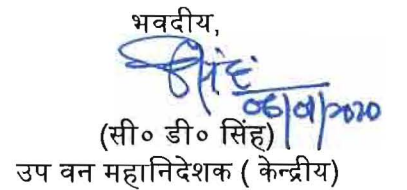 भवदीय,
सिंह
06/01/2020
(सी० डी० सिंह)
उप वन महानिदेशक ( केन्द्रीय)